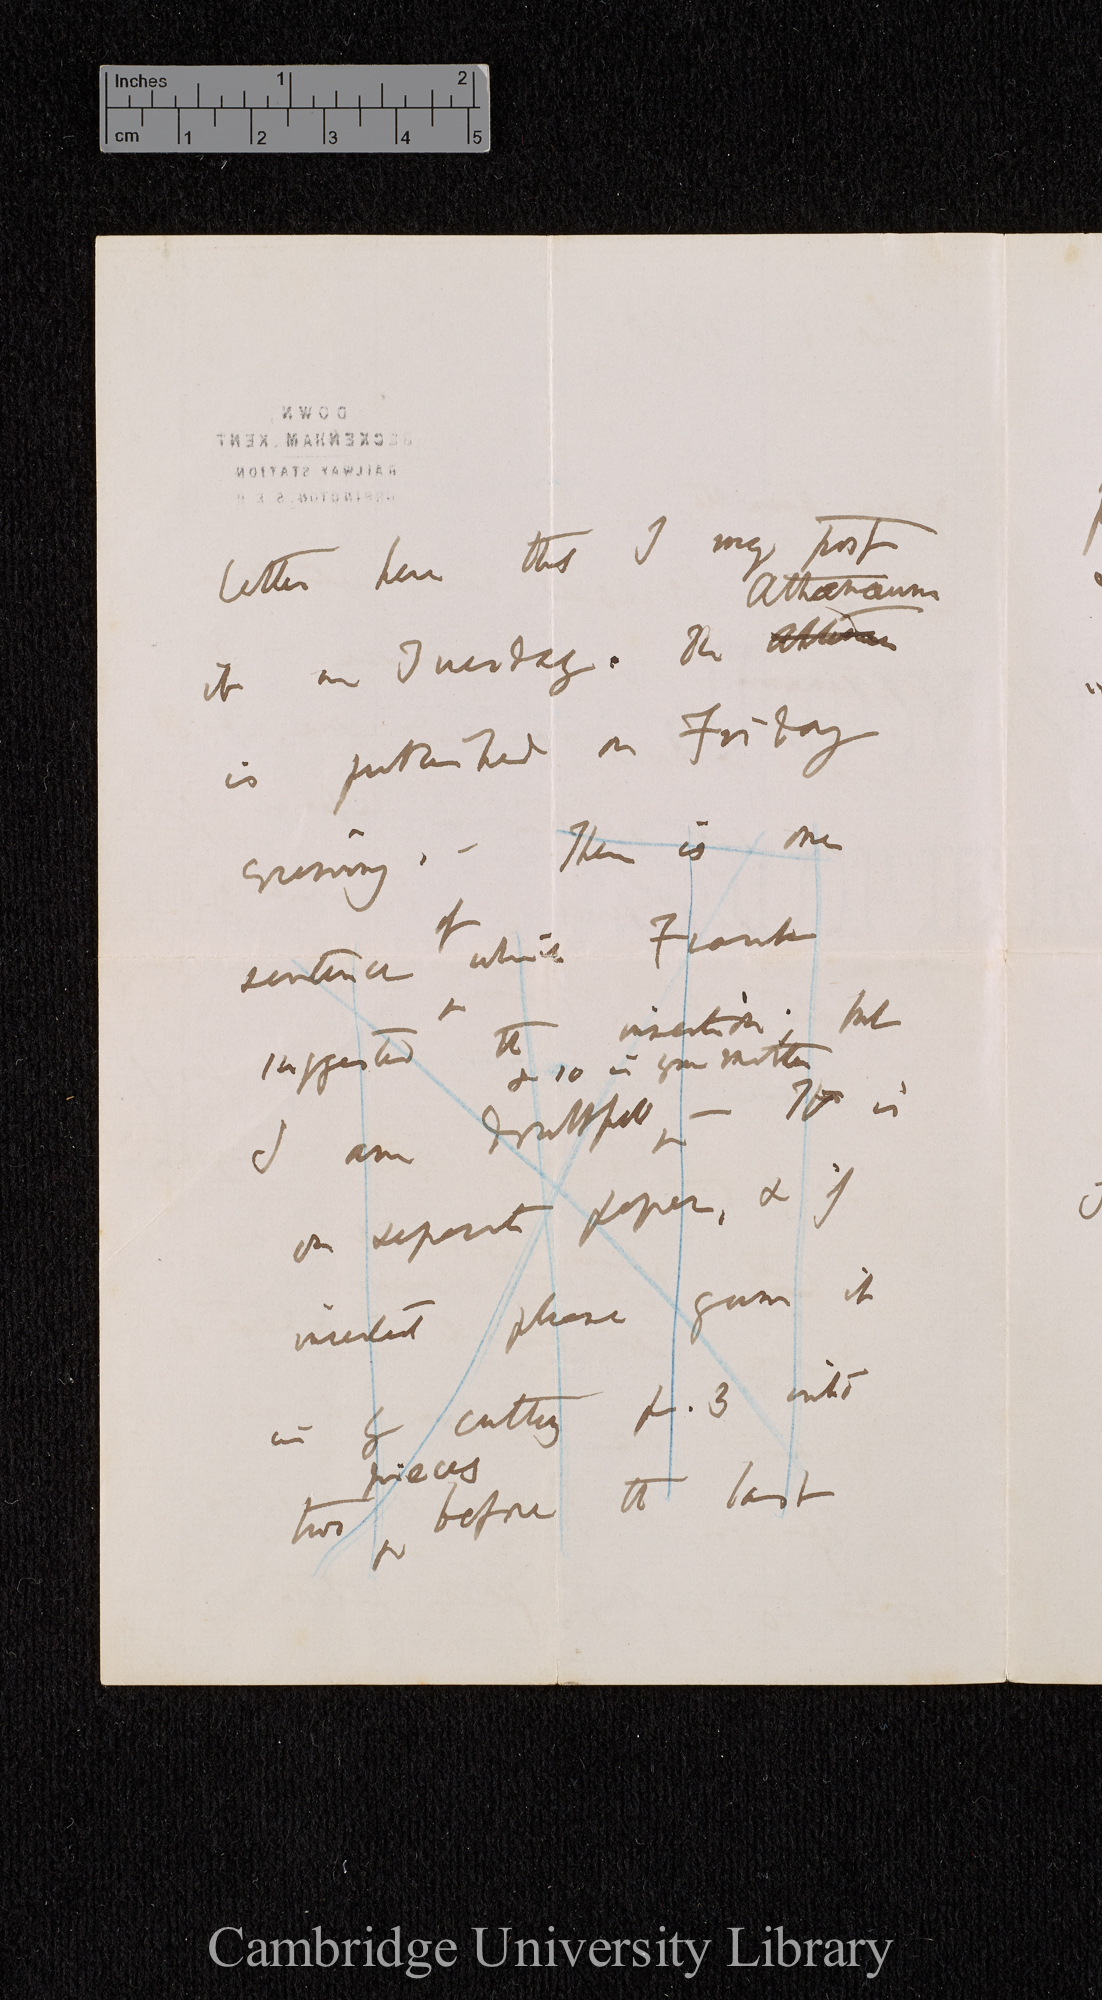 Inches 1 2
cm 1 2 3 4 5
DOWN,
BECKENHAM, KENT
RAILWAY STATION
ORPINGTON. S. E. R.
letter here that I may post
Athenæum
it on Tuesday. The
is published on Friday
evening. — There is one
of
sentence which Frank
suggested the insertion; but
& so is your mother
I am doubtful — It is
on separate paper, & if
inserted please gum it
in by cutting p. 3 into
pieces
two before the last
Cambridge University Library